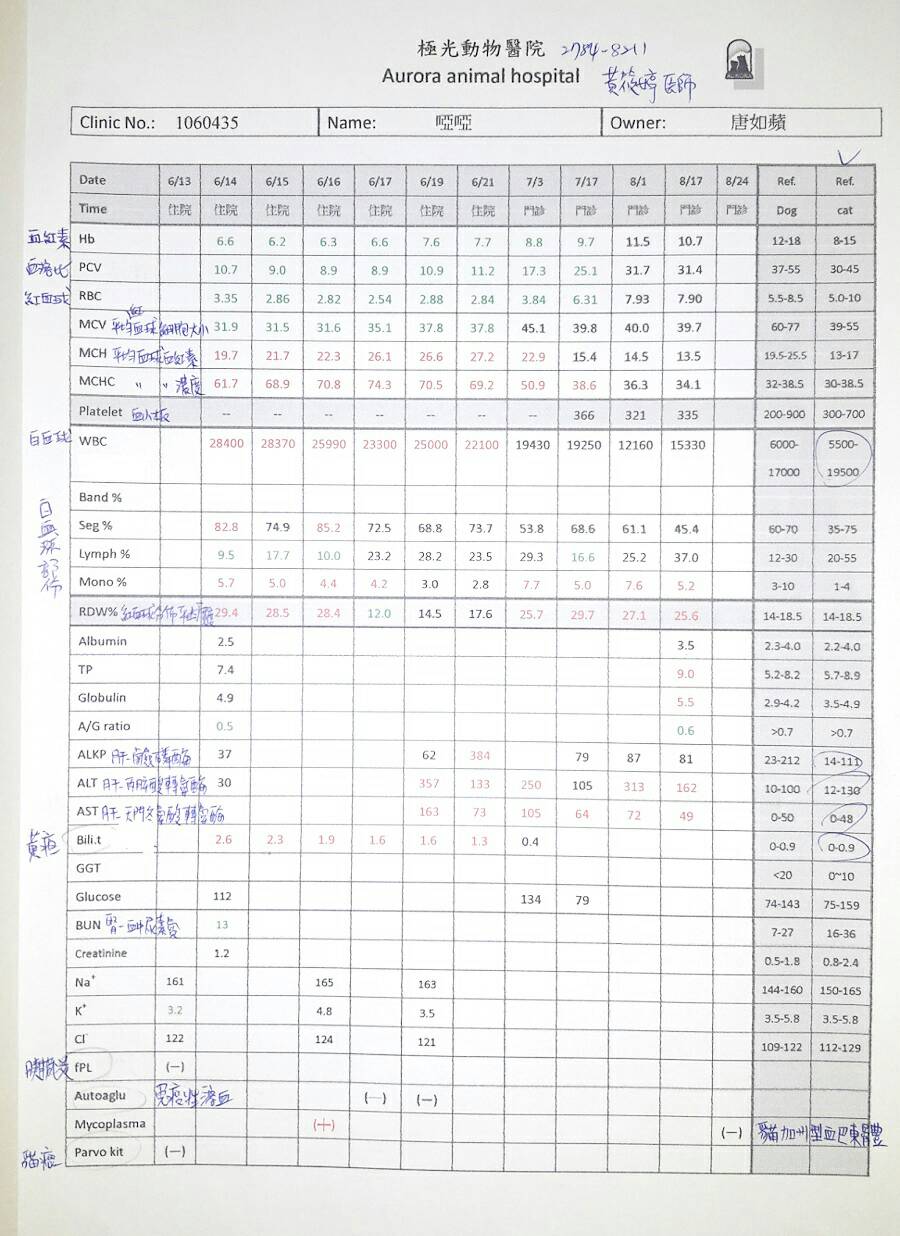 極光動物醫院 2784-8211
Aurora animal hospital 黃筱婷 医師
AURORA
Clinic No.: 1060435 Name: 啞啞 Owner: 唐如蘋
Date 6/13 6/14 6/15 6/16 6/17 6/19 6/21 7/3 7/17 8/1 8/17 8/24 Ref. Ref.
Time 住院 住院 住院 住院 住院 住院 住院 門診 門診 門診 門診 門診 Dog cat
血紅素 Hb 6.6 6.2 6.3 6.6 7.6 7.7 8.8 9.7 11.5 10.7 12-18 8-15
血溶比 PCV 10.7 9.0 8.9 8.9 10.9 11.2 17.3 25.1 31.7 31.4 37-55 30-45
紅血球 RBC 3.35 2.86 2.82 2.54 2.88 2.84 3.84 6.31 7.93 7.90 5.5-8.5 5.0-10
MCV 平均血球細胞大小 31.9 31.5 31.6 35.1 37.8 37.8 45.1 39.8 40.0 39.7 60-77 39-55
MCH 平均血球血紅素 19.7 21.7 22.3 26.1 26.6 27.2 22.9 15.4 14.5 13.5 19.5-25.5 13-17
MCHC " " 濃度 61.7 68.9 70.8 74.3 70.5 69.2 50.9 38.6 36.3 34.1 32-38.5 30-38.5
Platelet 血小板 -- -- -- -- -- -- -- 366 321 335 200-900 300-700
白血球 WBC 28400 28370 25990 23300 25000 22100 19430 19250 12160 15330 6000-17000 5500-19500
Band %
白血球部份
Seg % 82.8 74.9 85.2 72.5 68.8 73.7 53.8 68.6 61.1 45.4 60-70 35-75
Lymph % 9.5 17.7 10.0 23.2 28.2 23.5 29.3 16.6 25.2 37.0 12-30 20-55
Mono % 5.7 5.0 4.4 4.2 3.0 2.8 7.7 5.0 7.6 5.2 3-10 1-4
RDW% 紅血球分佈 29.4 28.5 28.4 12.0 14.5 17.6 25.7 29.7 27.1 25.6 14-18.5 14-18.5
Albumin 2.5 3.5 2.3-4.0 2.2-4.0
TP 7.4 9.0 5.2-8.2 5.7-8.9
Globulin 4.9 5.5 2.9-4.2 3.5-4.9
A/G ratio 0.5 0.6 >0.7 >0.7
ALKP 肝-鹼磷酶 37 62 384 79 87 81 23-212 14-111
ALT 肝-丙胺酸轉氨酶 30 357 133 250 105 313 162 10-100 12-130
AST 肝-天門冬氨酸轉氨酶 163 73 105 64 72 49 0-50 0-48
黃疸 Bili.t 2.6 2.3 1.9 1.6 1.6 1.3 0.4 0-0.9 0-0.9
GGT <20 0~10
Glucose 112 134 79 74-143 75-159
BUN 腎-血中尿素氮 13 7-27 16-36
Creatinine 1.2 0.5-1.8 0.8-2.4
Na+ 161 165 163 144-160 150-165
K+ 3.2 4.8 3.5 3.5-5.8 3.5-5.8
Cl- 122 124 121 109-122 112-129
胰臟炎 fPL (-)
Autoaglu 免疫性溶血 (-) (-)
Mycoplasma (+) (-) 貓加州型血巴東體
貓瘟 Parvo kit (-)